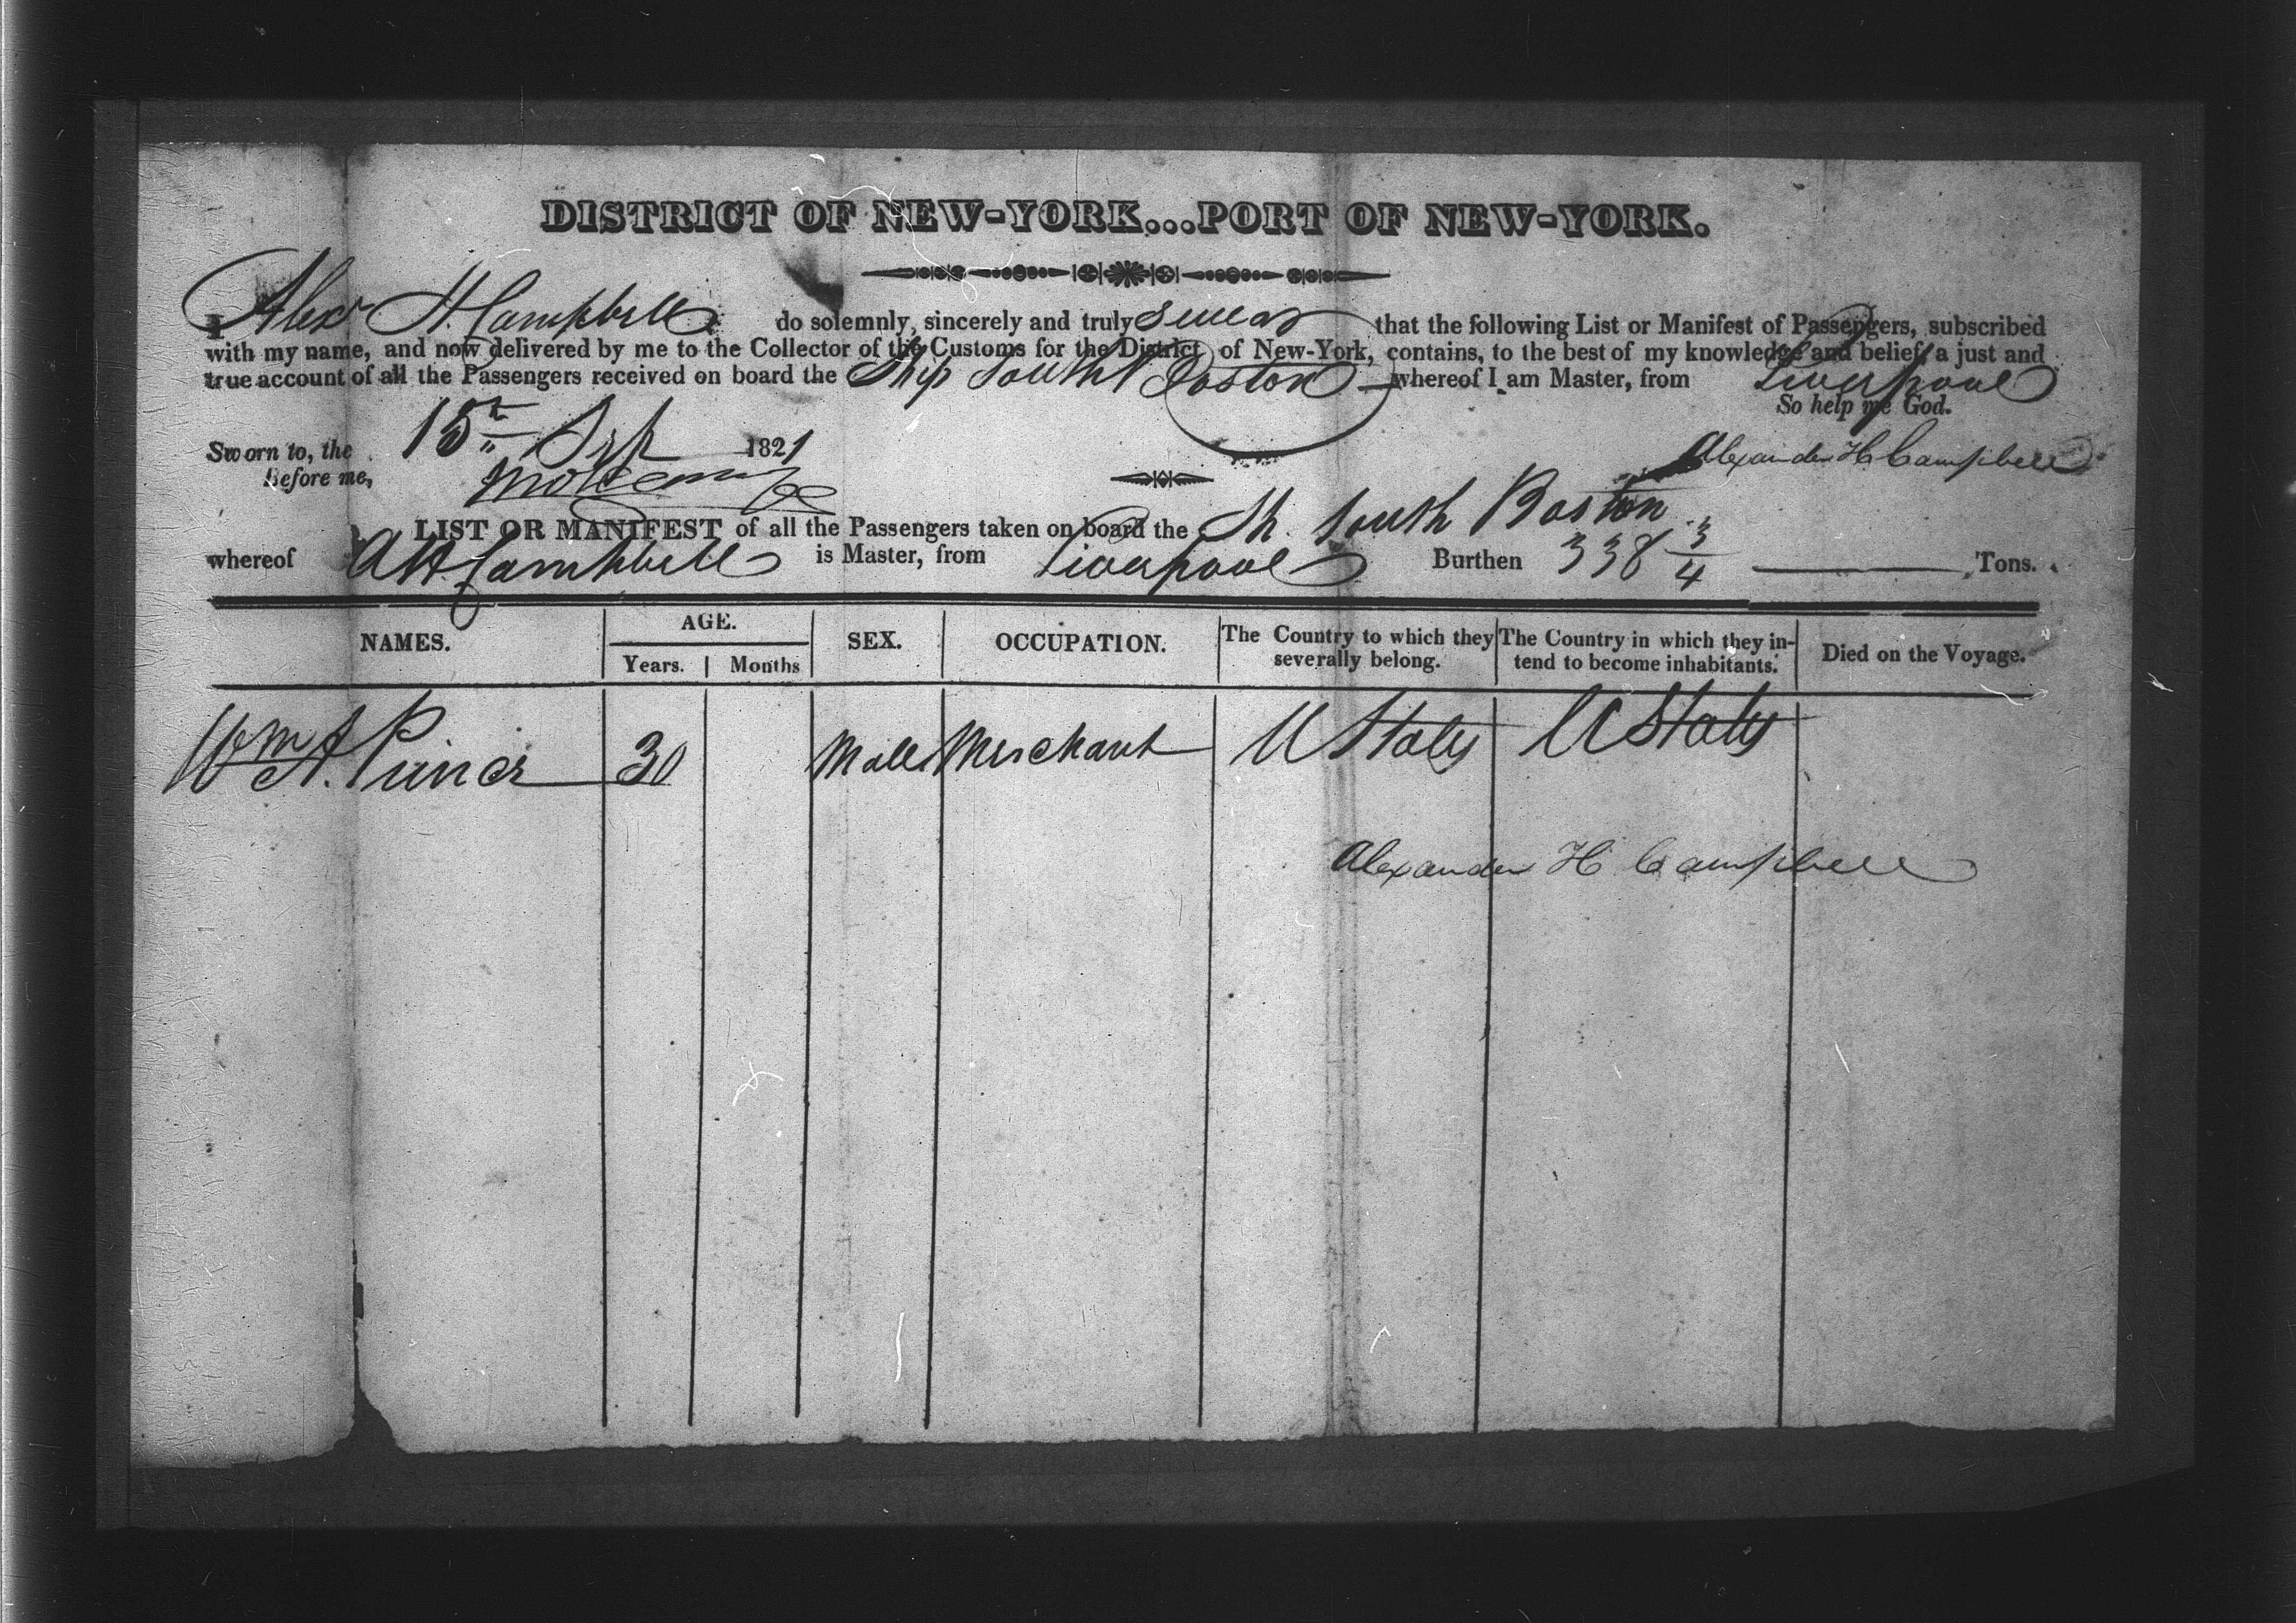 DISTRICT OF NEW-YORK...PORT OF NEW-YORK.
I Alexr H. Campbell do solemnly, sincerely and truly swear that the following List or Manifest of Passengers, subscribed
with my name, and now delivered by me to the Collector of the Customs for the District of New-York, contains, to the best of my knowledge and belief, a just and
true account of all the Passengers received on board the Ship South Boston whereof I am Master, from Liverpool
So help me God.
Sworn to, the 15th Sep 1821
Alexander H Campbell
Before me,
LIST OR MANIFEST of all the Passengers taken on board the Sh. South Boston
whereof A H Campbell is Master, from Liverpool Burthen 338 3/4 Tons.
NAMES. AGE. Years. Months SEX. OCCUPATION. The Country to which they severally belong. The Country in which they intend to become inhabitants. Died on the Voyage.
Wm A. 30 Male Merchant U States U States
Alexander H Campbell